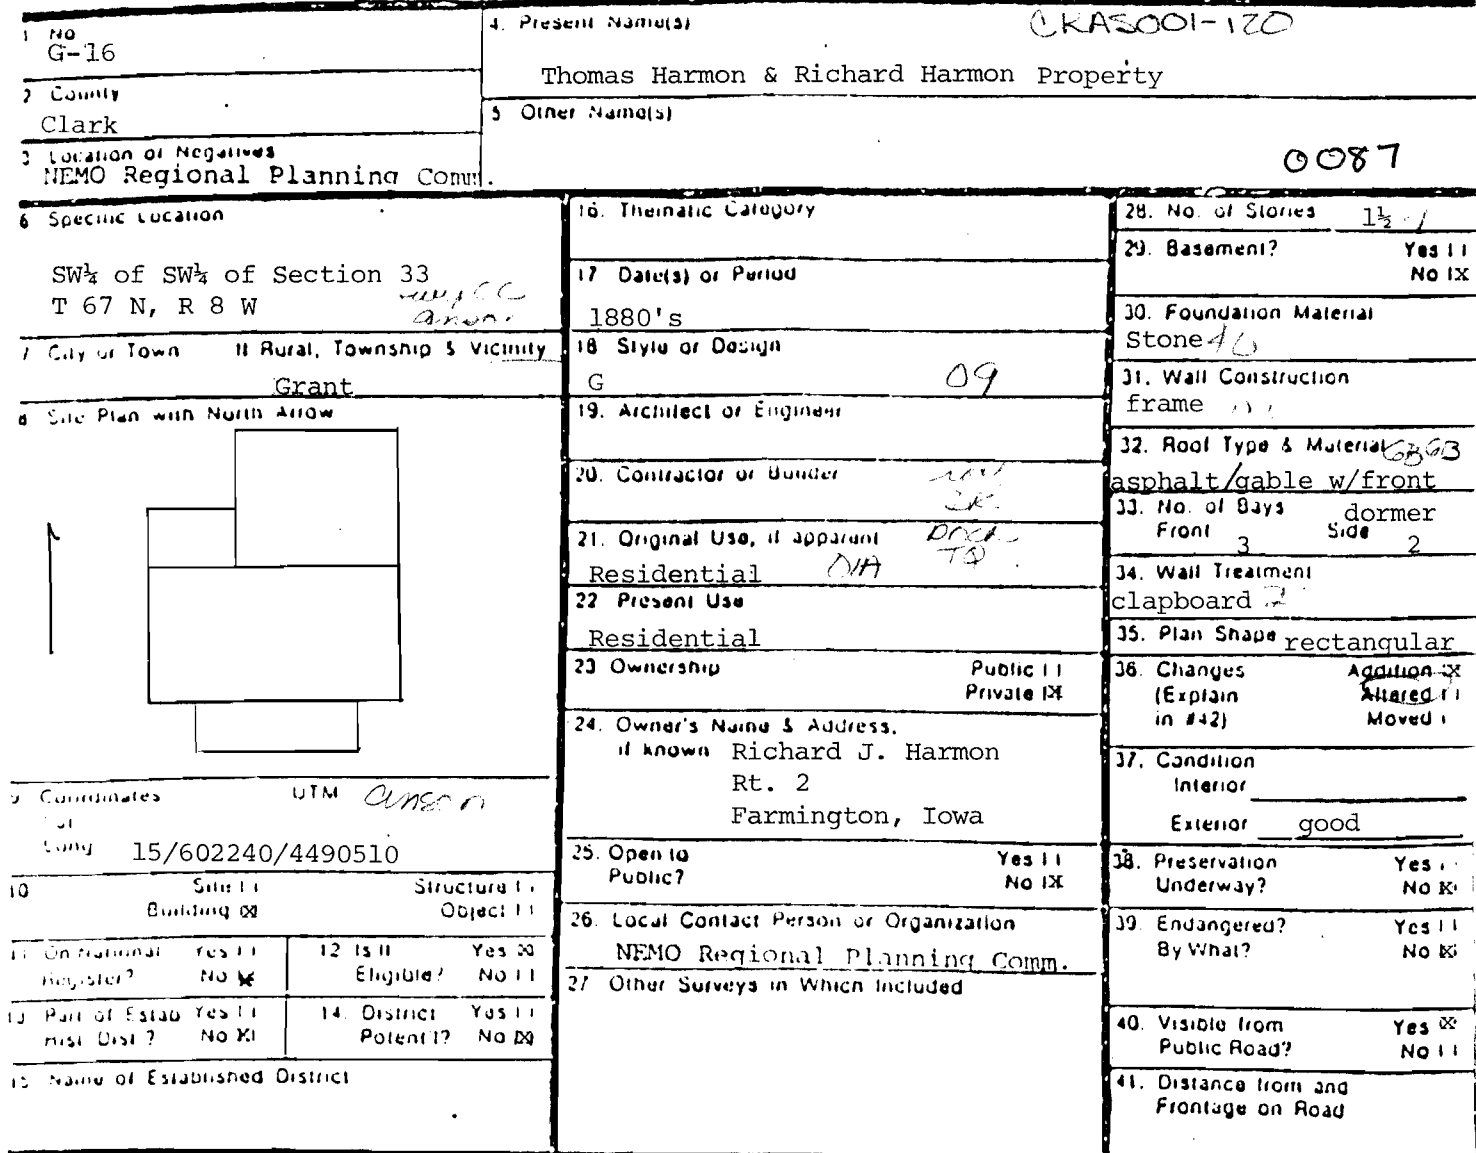 1 No
G-16
4. Present Name(s)
CKAS001-120
Thomas Harmon & Richard Harmon Property
2 County
Clark
5 Other Name(s)
3 Location of Negatives
NEMO Regional Planning Comm.
0087
6 Specific Location
SW¼ of SW¼ of Section 33
T 67 N, R 8 W
anson
7 City or Town If Rural, Township & Vicinity
Grant
8 Site Plan with North Arrow
9 Coordinates UTM anson
Lat
Long 15/602240/4490510
10 Site [ ] Structure [ ]
Building [X] Object [ ]
11 On National Register? Yes [ ] No [X]
12 Is It Eligible? Yes [X] No [ ]
13 Part of Estab Hist Dist? Yes [ ] No [X]
14. District Potent'l? Yes [ ] No [X]
15 Name of Established District
16. Thematic Category
17 Date(s) or Period
1880's
18 Style or Design
G 09
19. Architect or Engineer
20. Contractor or Builder
21. Original Use, if apparent
Residential 01A
22 Present Use
Residential
23 Ownership Public [ ]
Private [X]
24. Owner's Name & Address,
if known Richard J. Harmon
Rt. 2
Farmington, Iowa
25. Open to Public? Yes [ ]
No [X]
26. Local Contact Person or Organization
NEMO Regional Planning Comm.
27 Other Surveys in Which Included
28. No. of Stories 1½
29. Basement? Yes [ ]
No [X]
30. Foundation Material
Stone 40
31. Wall Construction
frame
32. Roof Type & Material GB 63
asphalt/gable w/front
dormer
33. No. of Bays
Front 3 Side 2
34. Wall Treatment
clapboard
35. Plan Shape rectangular
36. Changes Addition [X]
(Explain Altered [ ]
in #42) Moved [ ]
37. Condition
Interior
Exterior good
38. Preservation Yes [ ]
Underway? No [X]
39. Endangered? Yes [ ]
By What? No [X]
40. Visible from Yes [X]
Public Road? No [ ]
41. Distance from and
Frontage on Road